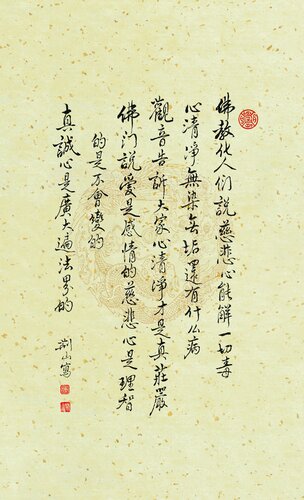 佛教化人們說慈悲心能解一切毒
心清淨無染無垢還有什么病
觀音告訴大家心清淨才是真莊嚴
佛门說愛是感情的慈悲心是理智
的是不會變的
真誠心是廣大遍法界的
荊山寫